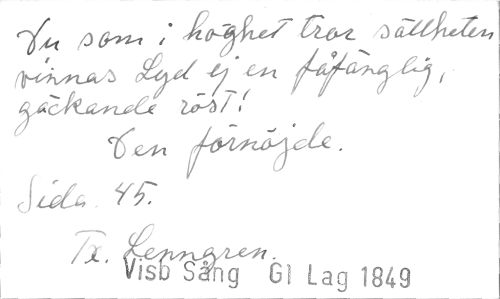 Du som i höghet tror sällheten
vinnas Lyd ej en fåfänglig,
gäckande röst!
Den förnöjde.
Sida 45.
Tx. Lenngren.
Visb Sång Gl Lag 1849